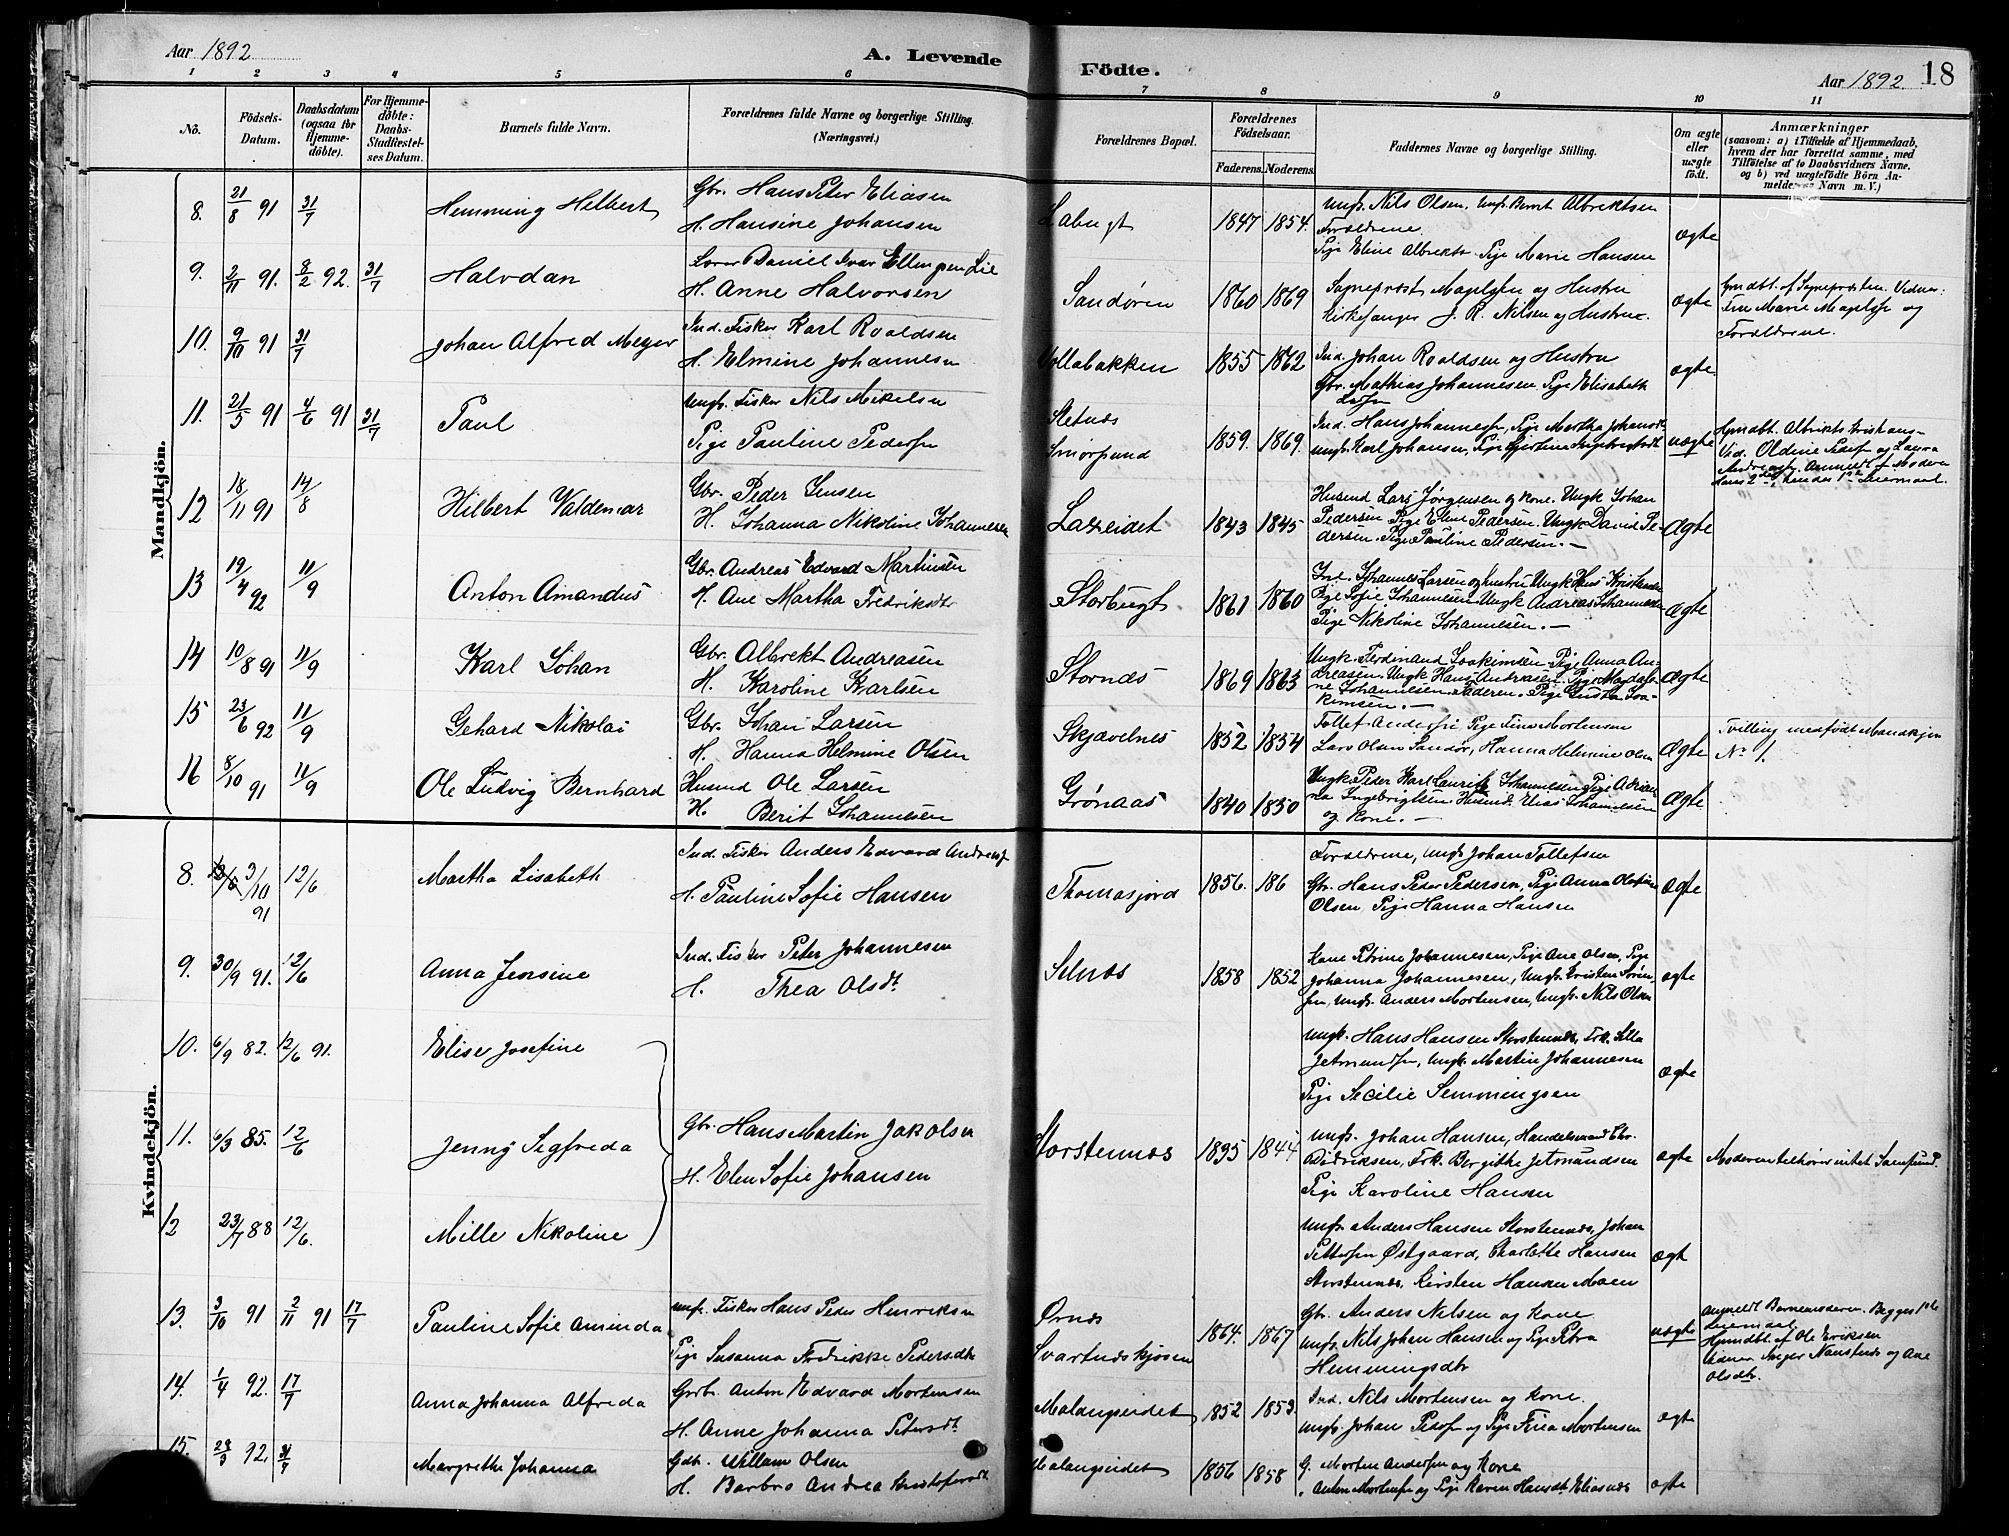 Aar 1892
A. Levende
Födte.
Aar 1892
18
1 2 3 4 5 6 7 8 9 10 11
No.
Födsels-Datum.
Daabsdatum (ogsaa for Hjemme-döbte).
For Hjemme-döbte: Daabs-Stadfæstel-ses Datum.
Barnets fulde Navn.
Forældrenes fulde Navne og borgerlige Stilling. (Næringsvei.)
Forældrenes Bopæl.
Forældrenes Födselsaar.
Faderens. Moderens.
Faddernes Navne og borgerlige Stilling.
Om ægte eller uægte födt.
Anmærkninger
(saasom: a) i Tilfælde af Hjemmedaab, hvem der har forrettet samme, med Tilföielse af to Daabsvidners Navne. og b) ved uægtefödte Börn An-melderens Navn m. V.)
Mandkjön.
8. 21/8 91 31/7 Hemming Hilbert
Gbr. Hans Peter Eliasen
H. Hansine Johansen
1847 1854.
Ungk. Nils Olsen, Ungk. Bernt Albrektsen
Forældrene.
Pige Eline Albrektsr. Pige Marie Hansen
ægte
9. 2/11 91. 8/2 92. 31/7 Halvdan
Daniel Ivar
H. Anne Halvorsen
Sandøren 1860 1869
Sogneprest Magelsen og Hustru
Kirkesanger J. R. Nilsen og Hustru.
ægte
Hjmdbt. af Sognepræsten. Vidner:
Fru Marie og
Forældrene.
10. 9/10 91 31/7 Johan Alfred Meyer
Ind. Fisker Karl Roaldsen
H. Elmine Johannesn
Vollabakken 1855 1862
Ind. Johan Roaldsen og Hustru
Gbr. Mathias Johannesen, Pige Elisabeth
Larsen
ægte.
11. 21/5 91 4/6 91 31/7 Paul
Ungk. Fisker Nils Mikelsen
Pige Pauline Pedersen
1859. 1869.
Ind. Hans Johannesen, Pige Martha
Ungk. Karl Johansen, Pige
uægte
12 18/11 91 14/8 Hilbert Valdemar
Gbr. Peder Jensen
H. Johanna Nikoline Johannesen
Laxeidet 1843 1845
Husmd Lars Jørgensen og Kone. Ungk Johan
Pedersen Pige Eline Pedersen. Ungk David Pe-
dersen. Pige Pauline Pedersen. —
Ægte
13 19/4 92 11/9 Anton Amandus
Gbr. Andreas Edvard Martinsen
H. Ane Martha Fredriksdtr
Storbugt 1861 1860
Ind. Johannes Larsen og hustru Ungk Hans Kristensen
Pige Sofie Johannesen Ungk Andreas Johannesen
Pige Nikoline Johannesen. —
Ægte
14 10/8 91 11/9 Karl Johan
Gbr. Albrekt Andreasen
H. Karoline Karlsen
Stornæs 1869 1863
Ungk. Ferdinand Joakimsen Pige Anna An-
dreasen. Ungk Hans Andreasen Pige Magdale-
ne Johannesen Faderen. Pige Gusta Joa-
kimsen. —
Ægte
15 23/6 92 11/9 Gehard Nikolai
Gbr. Johan Larsen
H. Hanna Helmine Olsen
Skjævelnes 1852 1854
Tollef Andersen Pige Fina Mortensen
Lars Olsen Sandør, Hanna Helmine Olsen
Ægte
Tvilling medfødt Mandkjøn
No 1.
16 8/10 91 11/9 Ole Ludvig Bernhard
Husmd Ole Larsen
H. Berit Johannesen
Grønaas 1840 1850
Ungk Peder Karl Lauritz Johannesen Pige Adrian-
na Ingebrigtsen Husmd. Elias Johannesen
og Kone. —
Ægte
Kvindekjön.
8. 3/10 91 12/6 Martha Lisabeth
Ind. Fisker Anders Edvard Andreas
H. Pauline Sofie Hansen
Thomasjord 1856. 186
Forældrene, Ungk. Johan Tollefsen
Gbr. Hans Peder Pedersen, Pige Anna Olafine
Olsen, Pige Hanna Hansen
ægte
9. 30/9 91. 12/6 Anna Jensine
Ind. Fisker Peter Johannesen
H. Thea Olsdt
Selnæs 1858 1852
Kone Petrine Johannesen, Pige Ane Olsen, Pige
Johanna Johannesen, Ungk. Kristen Søren-
sen, Ungk. Anders Mortensen, Ungk. Nils Olsen
ægte
10. 6/9 82. 12/6 91. Elise Josefine
Ungk. Hans Hansen Storstennæs, Frk.
Jetmundsen, Ungk. Martin Johannesen
Pige Secilie Semmingsen
ægte
11. 6/3 85. 12/6 Jenny Sigfreda
Gbr. Hans Martin Jakolsen
H. Elen Sofie Johansen
Storstennæs 1835 1844
Ungk. Johan Hansen, Handelsmand Chr.
Didriksen, Frk. Bergithe Jetmundsen
Pige Karoline Hansen
ægte
Moderen tilhører intet Samfund.
12 23/7 88 12/6. Mille Nikoline
Ungk. Anders Hansen Storstennæs, Johan
Pettersen Østgaard, Charlotte Hansen
Storstennæs, Kirsten Hansen Moen
ægte
13. 3/10 91 2/11 91 17/7 Pauline Sofie Aminda
Ungk. Fisker Hans Peder Henriksen
Pige Susanna Fredrikke Pedersdtr
Ørnæs
Svartnæskjosen 1864. 1867
Gbr. Anders Nilsen og Kone
Ungk. Nils Johan Hansen og Pige Petra
Hemmingsdtr
uægte
Anmeldt Barnemoderen. Begges 1ste
Leiermaal.
Hjmdbt. af Ole Eriksen
Vidner og Ane
Olsdtr.
14. 1/4 92. 17/7 Anna Johanna Alfreda
Gbr. Anton Edvard Mortensen
H. Anne Johanna Petersdt
Malangseidet 1852 1853.
Ind. Nils Mortensen og Kone.
Ungk. Johan Peders og Pige Fina Mortensen
ægte
15. 92. 31/7 Margrethe Johanna
Gbr. Willam Olsen
H. Barbro Andrea Kristofersdt
Malangseidet 1856 1858
G. Morten Andersen og Kone
Anton Mortensen og Pige Karen Hansdt.
ægte